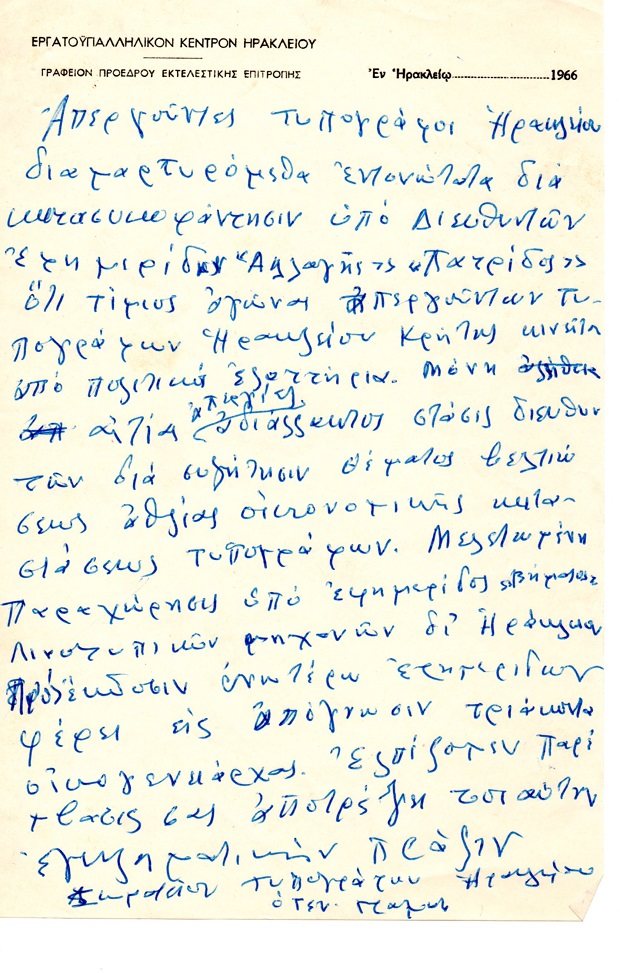 ΕΡΓΑΤΟΫΠΑΛΛΗΛΙΚΟΝ ΚΕΝΤΡΟΝ ΗΡΑΚΛΕΙΟΥ
ΓΡΑΦΕΙΟΝ ΠΡΟΕΔΡΟΥ ΕΚΤΕΛΕΣΤΙΚΗΣ ΕΠΙΤΡΟΠΗΣ Ἐν Ἡρακλείῳ..............................1966
Ἀπεργοῦντες τυπογράφοι Ἡρακλείου
διαμαρτυρόμεθα ἐντονώτατα διά
κατασυκοφάντησιν ὑπό Διευθυντῶν
Ἐφημερίδων «Ἀλλαγῆς» «Πατρίδος»
ὅτι τίμιος ἀγώνας ἀπεργούντων τυ-
πογράφων Ἡρακλείου Κρήτης κινεῖται
ὑπό πολιτικά ἐλατήρια. Μόνη
αἰτία ἀπεργίας ἀδιάλλακτος στάσις διευθυν
τῶν διά συζήτησιν θέματος βελτιώ
σεως ἀθλίας οἰκονομικῆς κατα-
στάσεως τυπογράφων. Μελετωμένη
Παραχώρησις ὑπό ἐφημερίδος «Βήματος»
Λινοτυπικῶν μηχανῶν δι' Ἡράκλειον
Πρός ἔκδοσιν ἀνωτέρω ἐφημερίδων
φέρει εἰς ἀπόγνωσιν τριάκοντα
οἰκογενειάρχας. Ἐλπίζομεν παρέ
μβασις σας ἀποτρέψει τοιαύτην
ἐγκληματικήν πρᾶξιν
Σωματεῖον τυπογράφων Ἡρακλείου
ὁ Γεν. Γραμμ